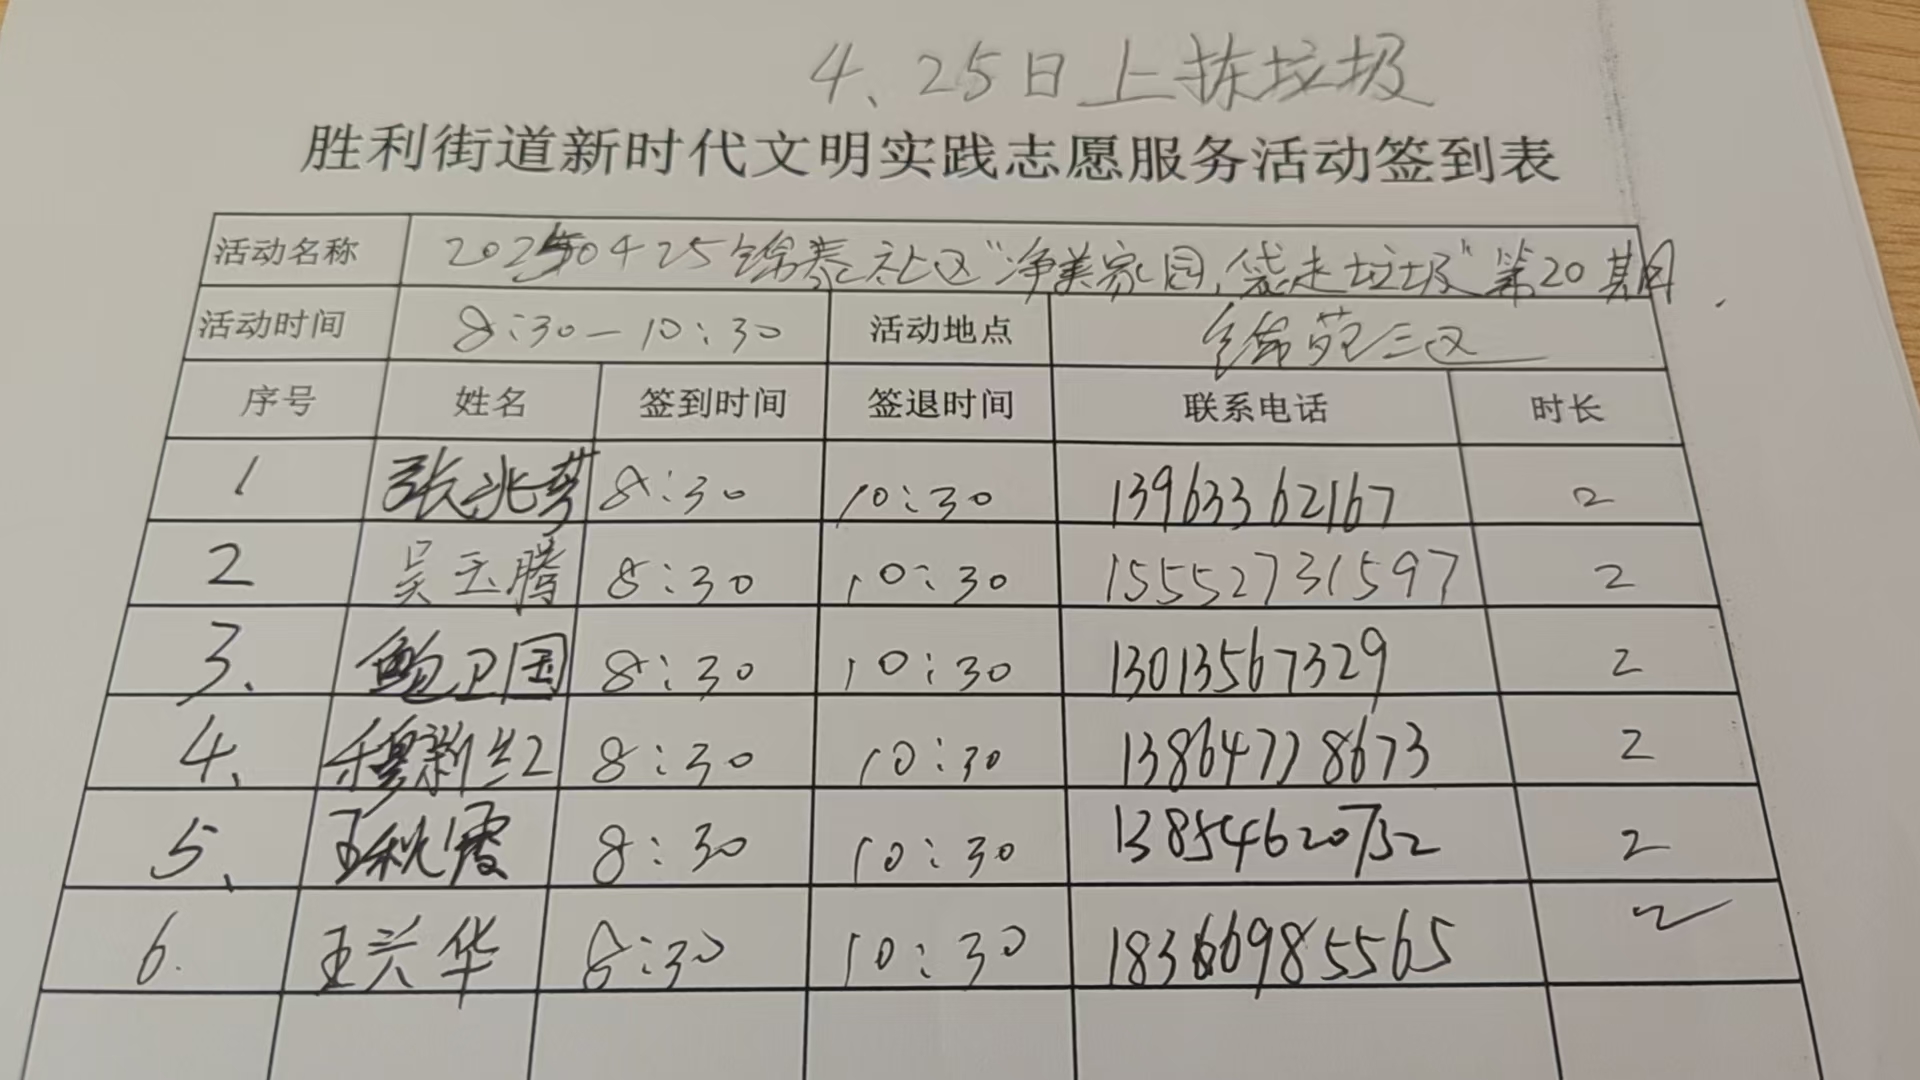 4、25日上拣垃圾
胜利街道新时代文明实践志愿服务活动签到表
活动名称 20250425锦泰社区“净美家园,袋走垃圾”第20期
活动时间 8:30-10:30 活动地点 锦苑三区
序号 姓名 签到时间 签退时间 联系电话 时长
1 张兆芹 8:30 10:30 13963362167 2
2 吴玉腾 8:30 10:30 15552731597 2
3、 鲍卫国 8:30 10:30 13013567329 2
4、 穆新红 8:30 10:30 13864778673 2
5、 王秋霞 8:30 10:30 13854620732 2
6. 王兴华 8:30 10:30 18366985565 2